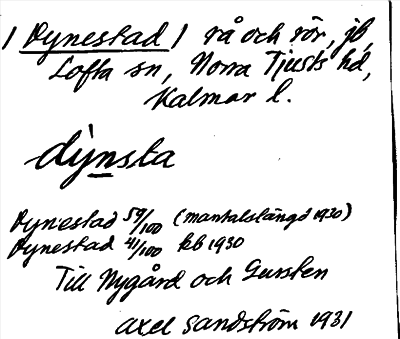 / Dynestad / rå och rör, jb,
Lofta sn, Norra Tjusts hd,
Kalmar l.
dynsta
Dynestad 59/100 (mantalslängd 1930)
Dynestad 41/100 kb 1930
Till Nygård och Gursten
Axel Sandström 1931